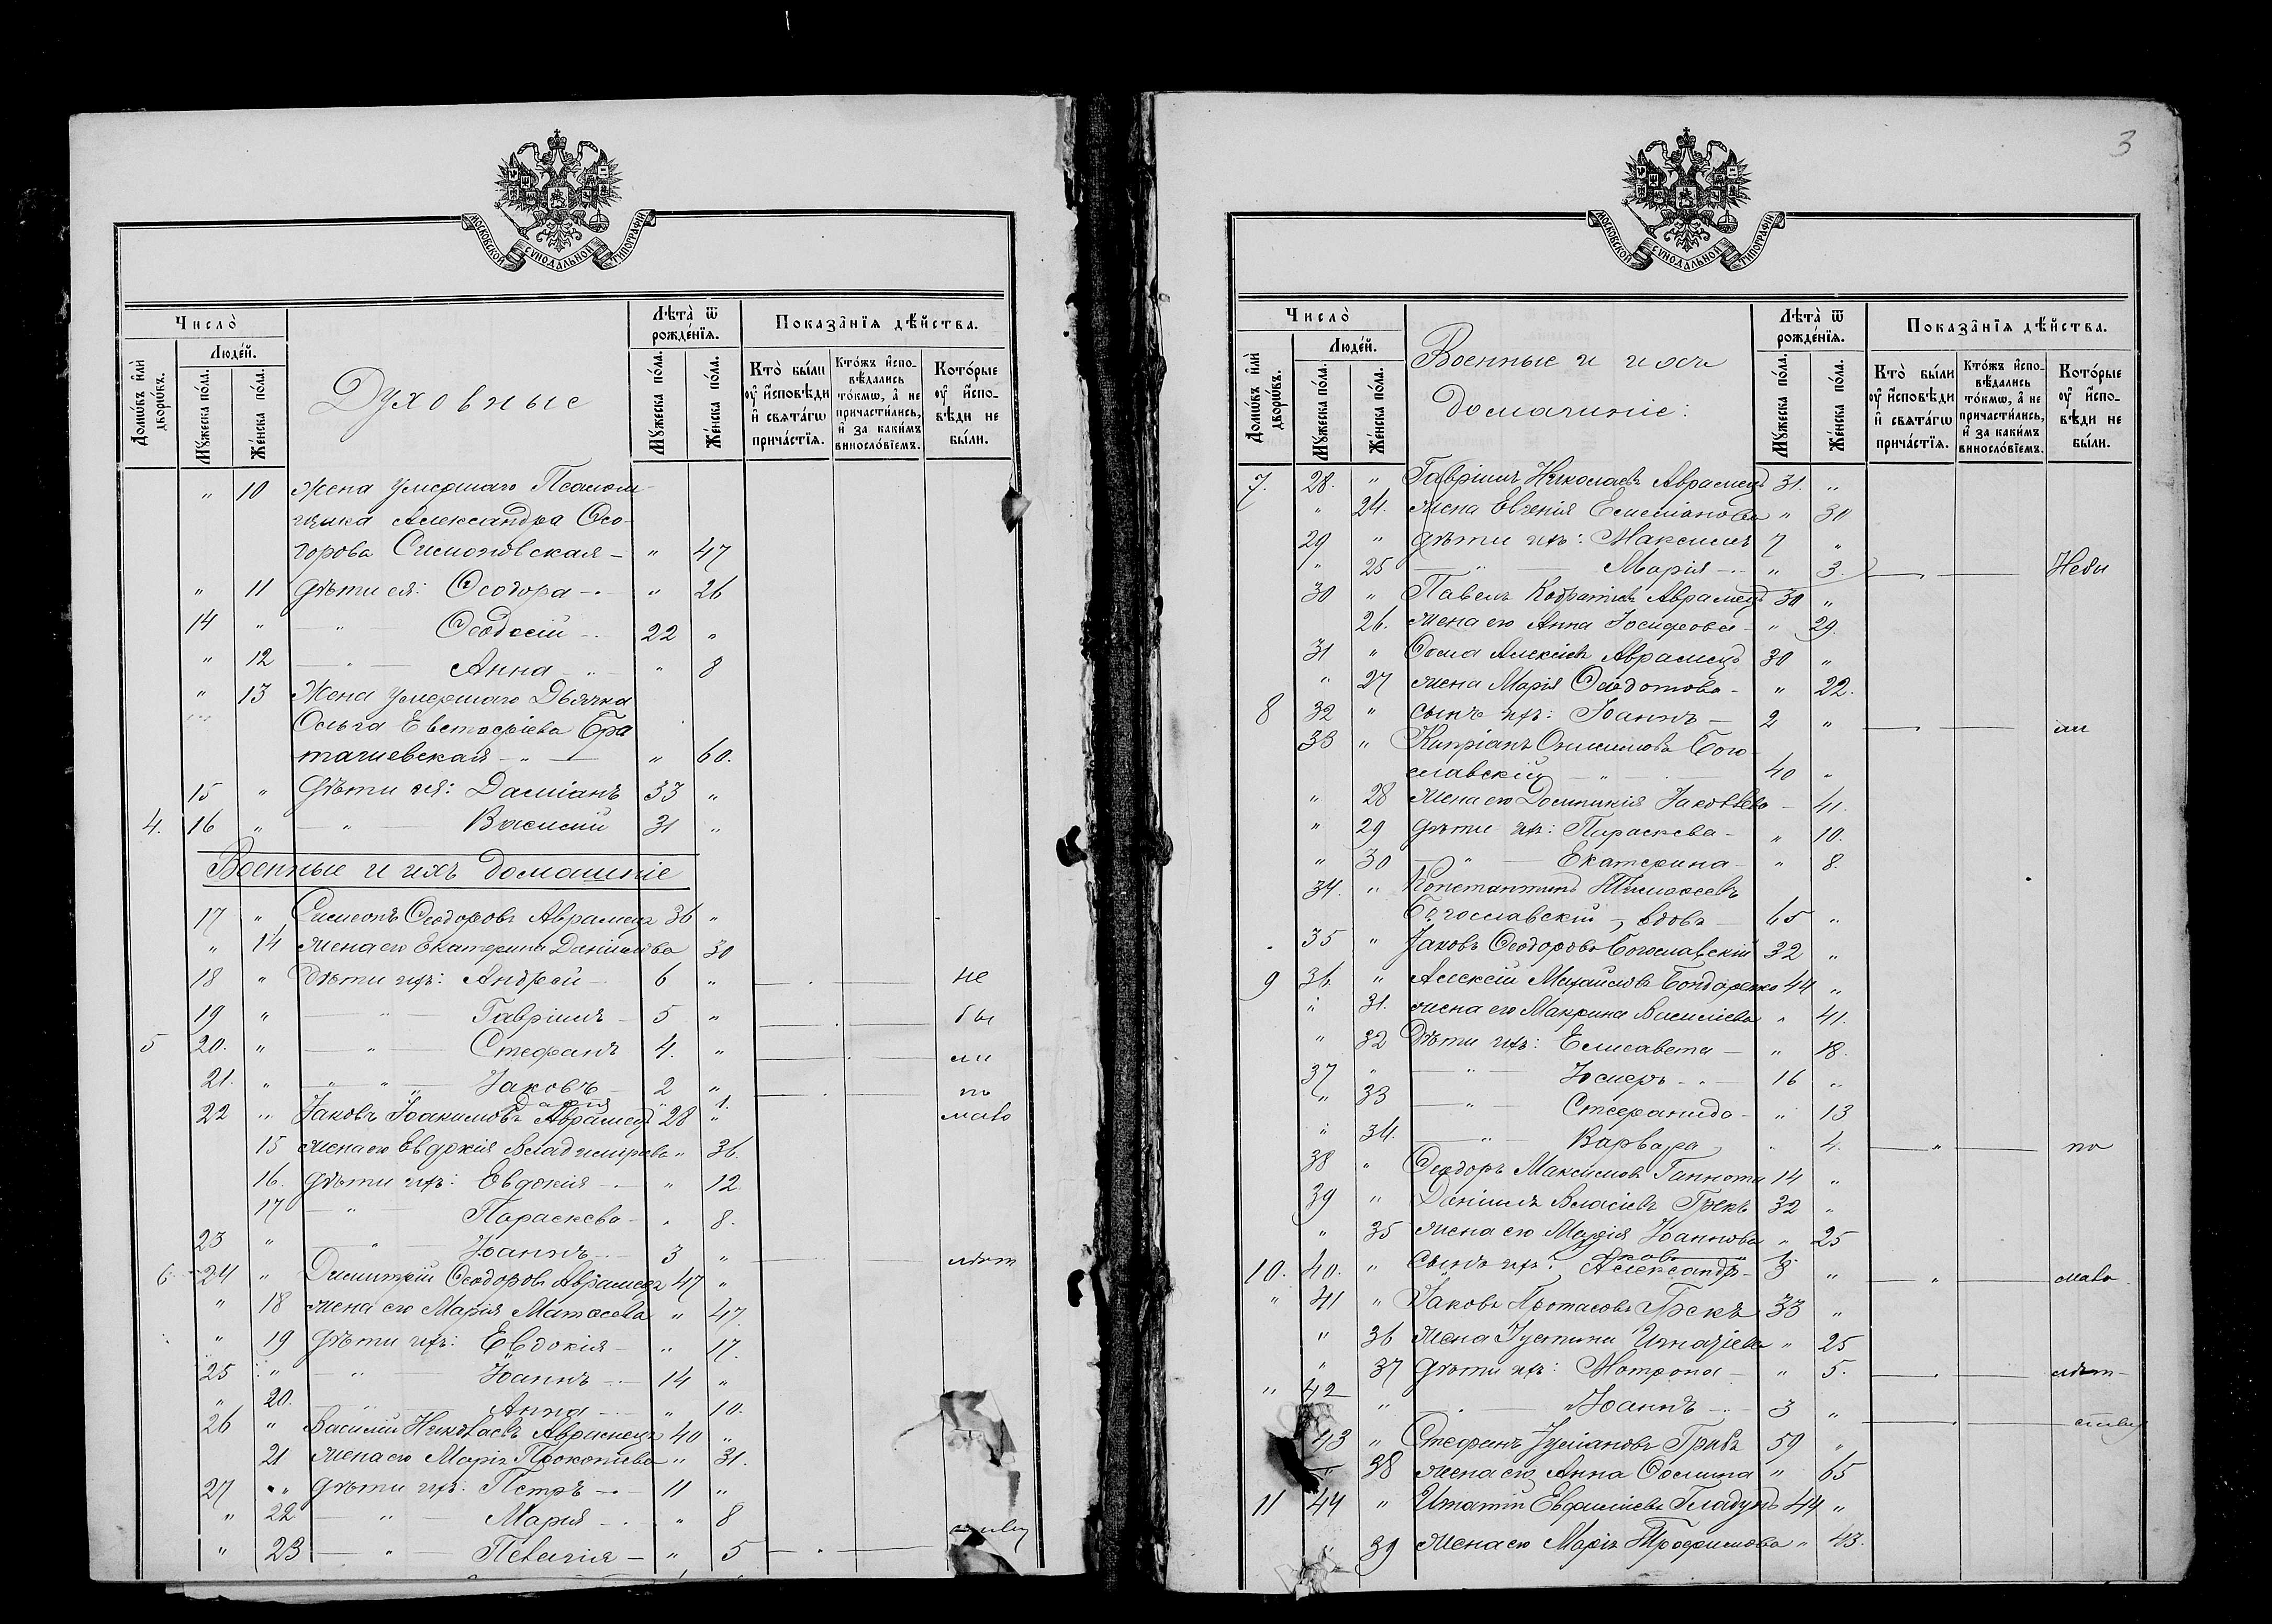 3
МОСКОВСКОЙ СѴНОДАЛЬНОЙ ТИПОГРАФІИ
Число̀
Людей.
Домѡ́въ и҆лѝ дворѡ́въ.
Мꙋ́жеска по́ла.
Же́нска по́ла.
Духовные
Лѣта̀ ѿ рожде́нїѧ.
Мꙋ́жеска по́ла.
Же́нска по́ла.
Показа̑нїѧ дѣ́йства.
Кто̀ бы́ли ᲂу҆ и҆́сповѣди и҆ свѧта́гѡ прича́стїѧ.
Кто́жъ и҆спо-вѣ́дались то́кмѡ, а҆ не причасти́лись, и҆ за каки́мъ винослові́емъ.
Кото́рые ᲂу҆ и҆́спо-вѣди не бы́ли.
" 10 Жена умершаго Псалом-
щика Александра Ѳео-
горова Симоновская — " 47
" 11 Дѣти ея: Ѳеодора — " 26
14 " — " — Ѳеодосій — 22 "
" 12 — " — Анна " 8
" 13 Жена умершаго Дьячка
Ольга Евстафіева Бра
тачиевская — " — " 60.
15 " Дѣти ея: Даміанъ 33 "
4. 16 " — " — Василій 31 "
Военные и ихъ домашніе
17 " Симеонъ Ѳеодоровъ Аврамецъ 36 "
" 14 Жена его Екатерина Даніилова 30
18 " Дѣти ихъ: Андрей — 6 " — не
19 " — " — Гавріилъ — 5 " — бы
5 20. " — " — Стефанъ 4. " — ли
21. " — " — Іаковъ — 2 " — по
Дарія " 1.
22 " Іаковъ Іоакимовъ Аврамецъ 28 " мало
15 Жена его Евдокія Владимірова " 36.
16. Дѣти ихъ: Евдокія — " 12
17 — " — Параскева — " 8.
23 " — " — Іоаннъ — 3 " — лѣт
6 24 " Димитрій Ѳеодоровъ Аврамецъ 47 "
" 18 Жена его Марія Матѳеева " 47.
" 19 Дѣти ихъ: Евдокія — " 17.
25 " — " — Іоаннъ — 14 "
" 20. — Анна — " 10.
26 " Василій Николаевъ Аврамецъ 40 "
21 Жена его Марія Прокопіева " 31.
27 " Дѣти ихъ: Петръ — 11 "
" 22 — " — Марія — " 8
" 23 — " — Пелагія — " 5 —
МОСКОВСКОЙ СѴНОДАЛЬНОЙ ТИПОГРАФІИ
Число̀
Людей.
Домѡ́въ и҆лѝ дворѡ́въ.
Мꙋ́жеска по́ла.
Же́нска по́ла.
Военные и ихъ
домашніе:
Лѣта̀ ѿ рожде́нїѧ.
Мꙋ́жеска по́ла.
Же́нска по́ла.
Показа̑нїѧ дѣ́йства.
Кто̀ бы́ли ᲂу҆ и҆́сповѣди и҆ свѧта́гѡ прича́стїѧ.
Кто́жъ и҆спо-вѣ́дались то́кмѡ, а҆ не причасти́лись, и҆ за каки́мъ винослові́емъ.
Кото́рые ᲂу҆ и҆́спо-вѣди не бы́ли.
7. 28. " Гавріилъ Николаевъ Аврамецъ 31. "
" 24. Жена Евгенія Емеліанова " 30
29 " Дѣти ихъ: Максимъ 7 "
" 25 — " — Марія — " 3. — Небы
30 " Павелъ Кодратіевъ Аврамецъ 30 "
26. Жена его Анна Іосифова — " 29.
31 " Ѳома Алексіевъ Аврамецъ 30 "
" 27 Жена Марія Ѳеодотова — " 22.
8 32 " Сынъ ихъ: Іоаннъ — 2 " — ли
33 " Кипріанъ Онисимовъ Бого-
славскій — " — 40 "
" 28 Жена его Домникія Іаковлева — 41.
" 29 Дѣти ихъ: Параскева — " 10.
" 30 — " — Екатерина — " 8.
34. " Константинъ Тимоѳеевъ
Богославскій, вдовъ — 65 "
35 " Іаковъ Ѳеодоровъ Богославскій 32 "
9 36. " Алексій Михаиловъ Бондаренко 44 "
" 31. Жена его Макрина Василіева " 41.
" 32 Дѣти ихъ: Елисавета — " 18.
37 " — " — Іосифъ — 16 "
" 33 — " — Стефанида — " 13
" 34. — " — Варвара " 4. — " — по
38 " Ѳеодоръ Максимовъ 14 "
39 " Даніилъ Власіевъ Грекъ 32 "
" 35 Жена его Марія Іоаннова " 25
10. 40. " Сынъ ихъ: Александръ — " — " — мало
" 41 " Іаковъ Протасовъ 33 "
" 36 Жена Іустина Игнатіева " 25
" 37 Дѣти ихъ: Матрона — " 5. — лѣт-
" 42 " — Іоаннъ — 3 " — ству
43 " Стефанъ Іуліановъ 59 "
" 38 Жена его Анна Ѳомина " 65
11 44 " Ипатій Евфиміевъ Гладунъ 44 "
" 39 Жена его Марія Трофимова " 43.